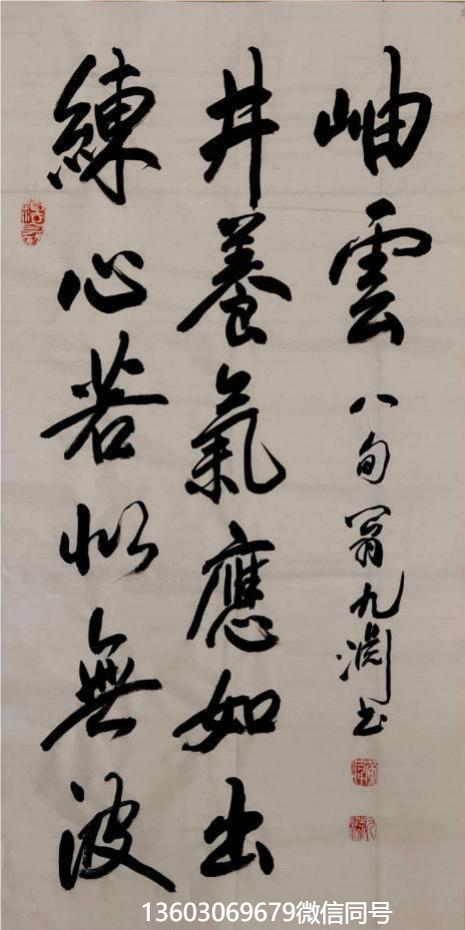 練心若似無波
井養氣應如出
岫雲
八旬翁九渊书
13603069679微信同号